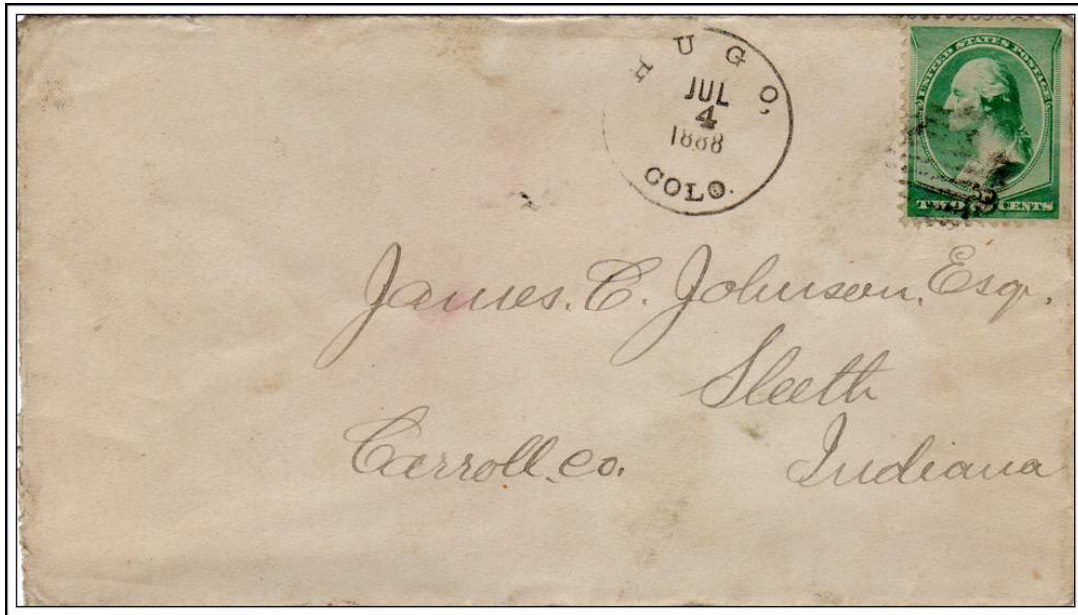 HUGO,
JUL
4
1888
COLO.
UNITED STATES POSTAGE
TWO CENTS
James. C. Johnson, Esqr.
Sleeth
Carroll. co. Indiana